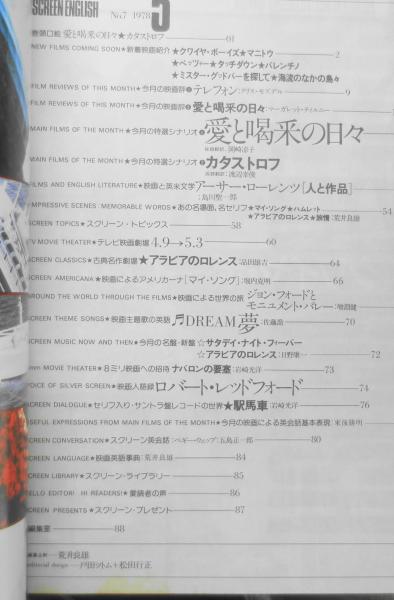 SCREEN ENGLISH No.7 1978 5
巻頭口絵 愛と喝采の日々★カタストロフ 61
NEW FILMS COMING SOON★新着映画紹介★クワイヤ・ボーイズ★マニトウ 2
★ベッツィー★タッチダウン★バレンチノ
★ミスター・グッドバーを探して★海流のなかの島々
FILM REVIEWS OF THIS MONTH★今月の映画評 テレフォン 9
FILM REVIEWS OF THIS MONTH★今月の映画評 愛と喝采の日々
MAIN FILMS OF THE MONTH★今月の特選シナリオ 愛と喝采の日々
MAIN FILMS OF THE MONTH★今月の特選シナリオ カタストロフ
FILMS AND ENGLISH LITERATURE★映画と英米文学 アーサー・ローレンツ[人と作品]
IMPRESSIVE SCENES: MEMORABLE WORDS★あの名場面、名セリフ★マイ・ソング★ハムレット 54
★アラビアのロレンス★旅情:荒井良雄
SCREEN TOPICS★スクリーン・トピックス 58
TV MOVIE THEATER★テレビ映画劇場 4.9→5.3 60
SCREEN CLASSICS★古典名作劇場★アラビアのロレンス 64
SCREEN AMERICANA★映画によるアメリカーナ[マイ・ソング]:堀内克明 66
AROUND THE WORLD THROUGH THE FILMS★映画による世界の旅 ジョン・フォードと
モニュメント・バレー
SCREEN THEME SONGS★映画主題歌の英語 ♬DREAM夢 70
SCREEN MUSIC NOW AND THEN★今月の名盤・新盤☆サタデイ・ナイト・フィーバー
☆アラビアのロレンス:日野康一 72
mm MOVIE THEATER★8ミリ映画への招待 ナバロンの要塞:岩崎光洋 73
VOICE OF SILVER SCREEN★映画人語録 ロバート・レッドフォード 74
SCREEN DIALOGUE★セリフ入り・サントラ盤レコードの世界★駅馬車:岩崎光洋 76
USEFUL EXPRESSIONS FROM MAIN FILMS OF THE MONTH★今月の映画による英会話基本表現
SCREEN CONVERSATION★スクリーン英会話 80
SCREEN LANGUAGE★映画英語事典:荒井良雄 84
SCREEN LIBRARY★スクリーン・ライブラリー 85
HELLO EDITOR! HI READERS!★愛読者の声 86
SCREEN PRESENTS★スクリーン・プレゼント 87
編集室 88
荒井良雄
editorial design — 戸田ツトム+松田行正